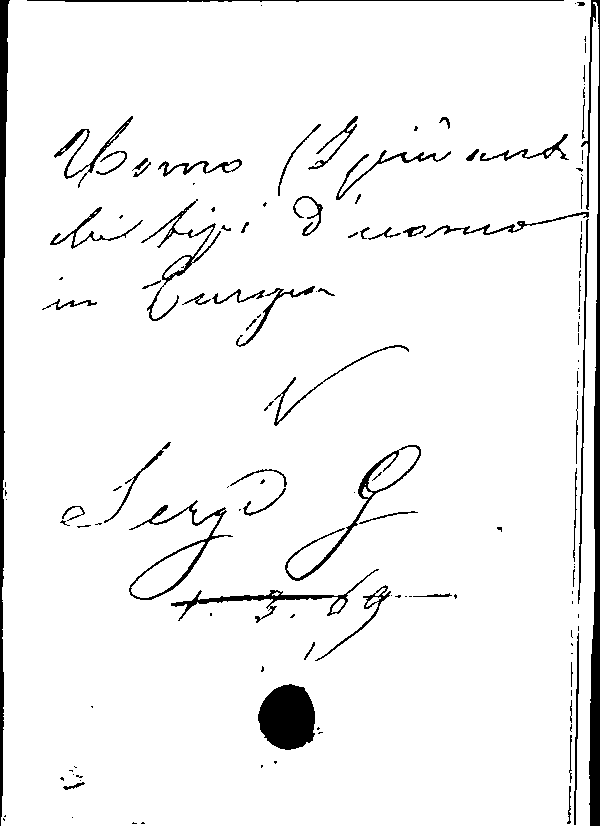 Uomo (I più anti-
chi tipi d'uomo
in Europa
V
Sergi G
1. 3. 69